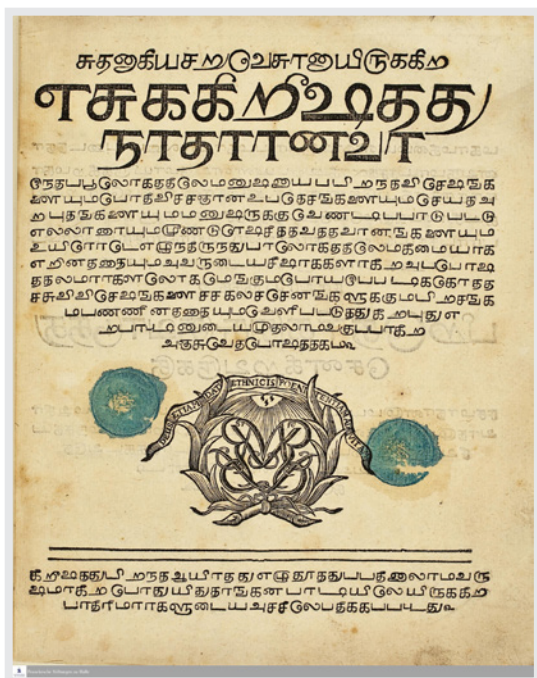 சுதனாகியசறுவேசுரனாயிருககிற
எசுககிறீஷதது
நாதரானவர
இநதபபூலோகததிலேமனுஷனாயபபிறநதவிசேஷஙக
ளையுமபோதிவிசசஞானஉபதேசஙகளையுமசெயதஅ
றபுதஙகளையுமமனுஷருககுவேணடிபபாடுபடடு
உயிரோடேஎழுநதிருநதுபரலோகததிலேமகிமையாக
எறினததையுமஅவருடையசீஷரககளாகிறஅபபோஷ
சசுவிவிசேஷஙகளைசகலசெனஙகளுககுமபிறசஙக
மபணணினததையுமவெளிபபடுததுகிறபுதுஎ
றபாடடினுடையமுதலாமவகுபபாகிற
அஞசுவேதபோஷததகம
DEUS ETIAM DAT ETHNICIS POENITENTIAM AD VITA
கிறீஷததுபிறநதஆயிரததுஎழுநூததுபபதினாலாமவரு
ஷமாகிறபோதுயிதுதரஙகனபாடியிலேயிருககிற
பாதிரிமாரகளுடையஅசசிலேபதிககபபடடது